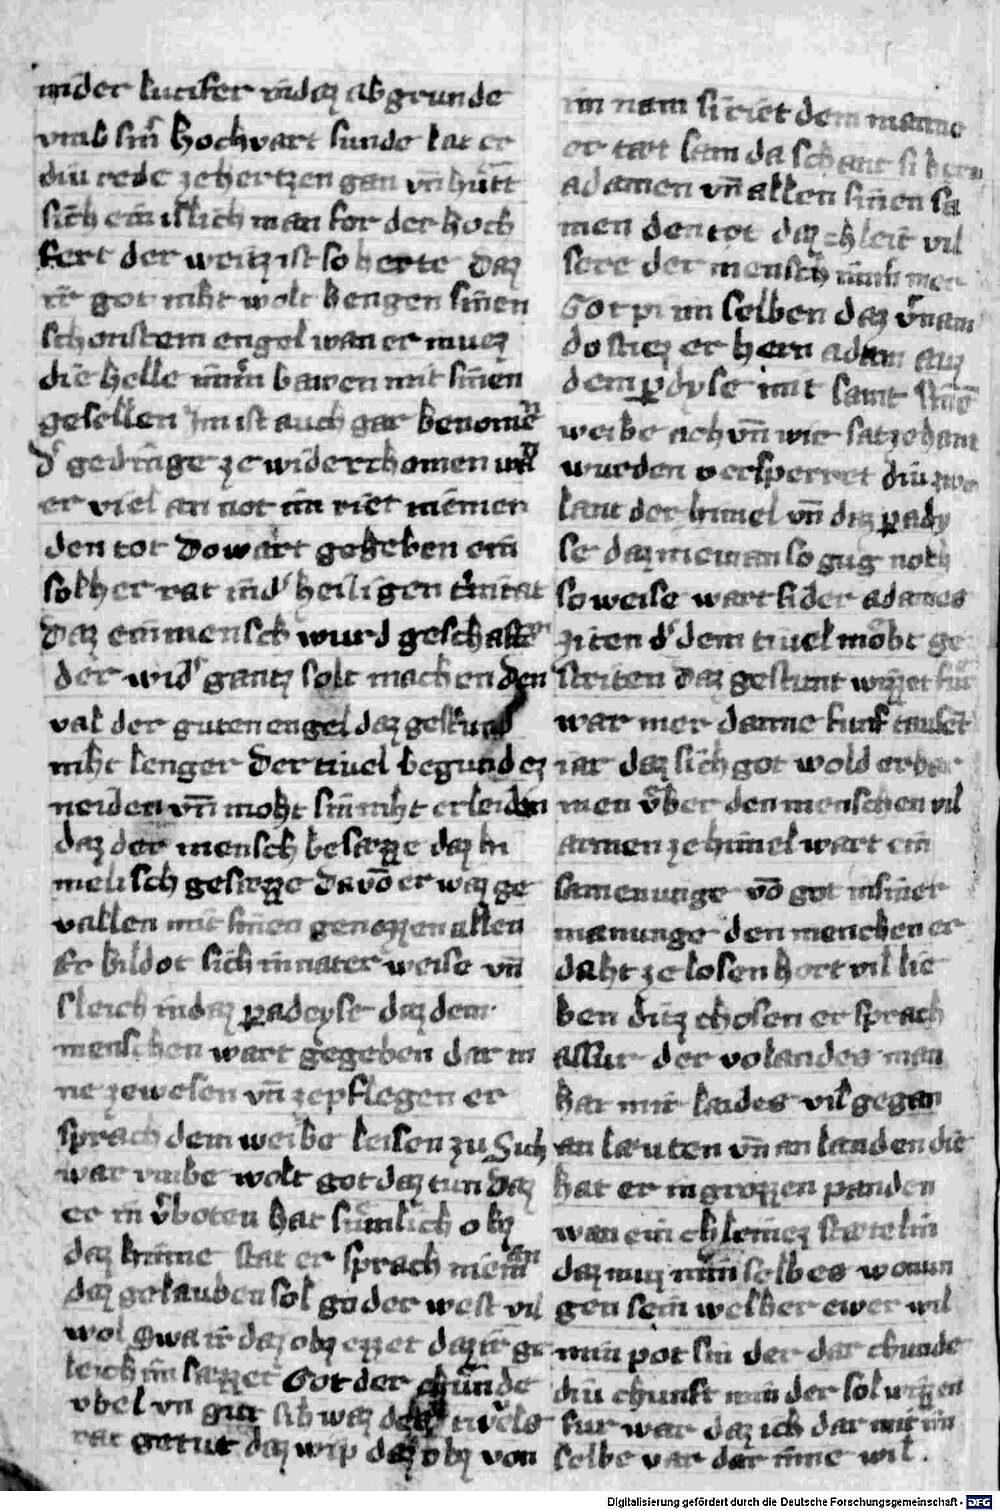 nider lucifer in daz abgrunde
vmb sin hochvart sunde lat er
diu rede ze hertzen gan vn̄ hütt
sich ein islich man for der hoch
fert der weitz ist so herte daz
ir got niht wolt hengen sinen
schonstem engel wan er muez
die helle immer bawen mit sinen
gesellen Im ist auch gar benomen
dˢ gedinge ze widerchomen wan
er viel an not im riet niemen
den tot Do wart gegeben ein
solher rat in dˢ heiligen trinitat
Daz ein mensch wurd geschaffen
der widˢ gantz solt machen den
val der guten engel daz gestund
niht lenger Der tiuel begund ez
neiden vn̄ moht sin niht erleiden
daz der mensch besæzze daz hi
melisch gesæzze da vō er waz ge
vallen mit sinen genozzen allen
Er bildot sich in nater weise vn̄
sleich in daz padeyse daz dem
menschen wart gegeben dar in
ne ze wesen vn̄ ze pflegen er
sprach dem weibe leisen zu Sich
war vmbe wolt got daz tun Daz
er iu v̓boten hat sumlich obz
daz hinne stat er sprach nieman
daz gelauben sol got der west vil
wol Swa ir daz obz ezzet daz ir ge
leich im sæzzet Got der chunde
vbel vn gut sih waz dez tivels
rat getut daz wip daz obz von
im nam si riet dem manne
er tæt sam da schant si hern
adamen vn̄ allen sinen sa
men den tot daz chleit vil
sere der mensch nimmer
Got pi im selben daz v̓nam
do stiez er hern adam auz
dem pdyse mit samt sinē
weibe ach vn̄ wie satzehant
wurden versperret diu zwei
lant der himel vn̄ daz pady
se daz nieman so gug noch
so weise wart sider adames
ziten dˢ dem tiuel möht ge
striten Daz gestunt wizzet für
war mer danne funf tausēt
iar daz sich got wold erbar
men vber den menschen vil
armen ze himel wart ein
samenunge vō got in siner
manunge den menchen er
daht ze losen hort vil lie
ben ditz chosen er sprach
assur der volandes man
hat mir laides vil gegan
an læuten vn̄ an landen die
hat er in grozzen panden
wan ein chleinez stætelin
daz muz min selbes wonun
gen sein welher ewer wil
min pot sin der dar chunde
diu chunft min der sol wizzen
fur war daz ich dar mit im
selbe var dar inne wil.
Digitalisierung gefördert durch die Deutsche Forschungsgemeinschaft - DFG